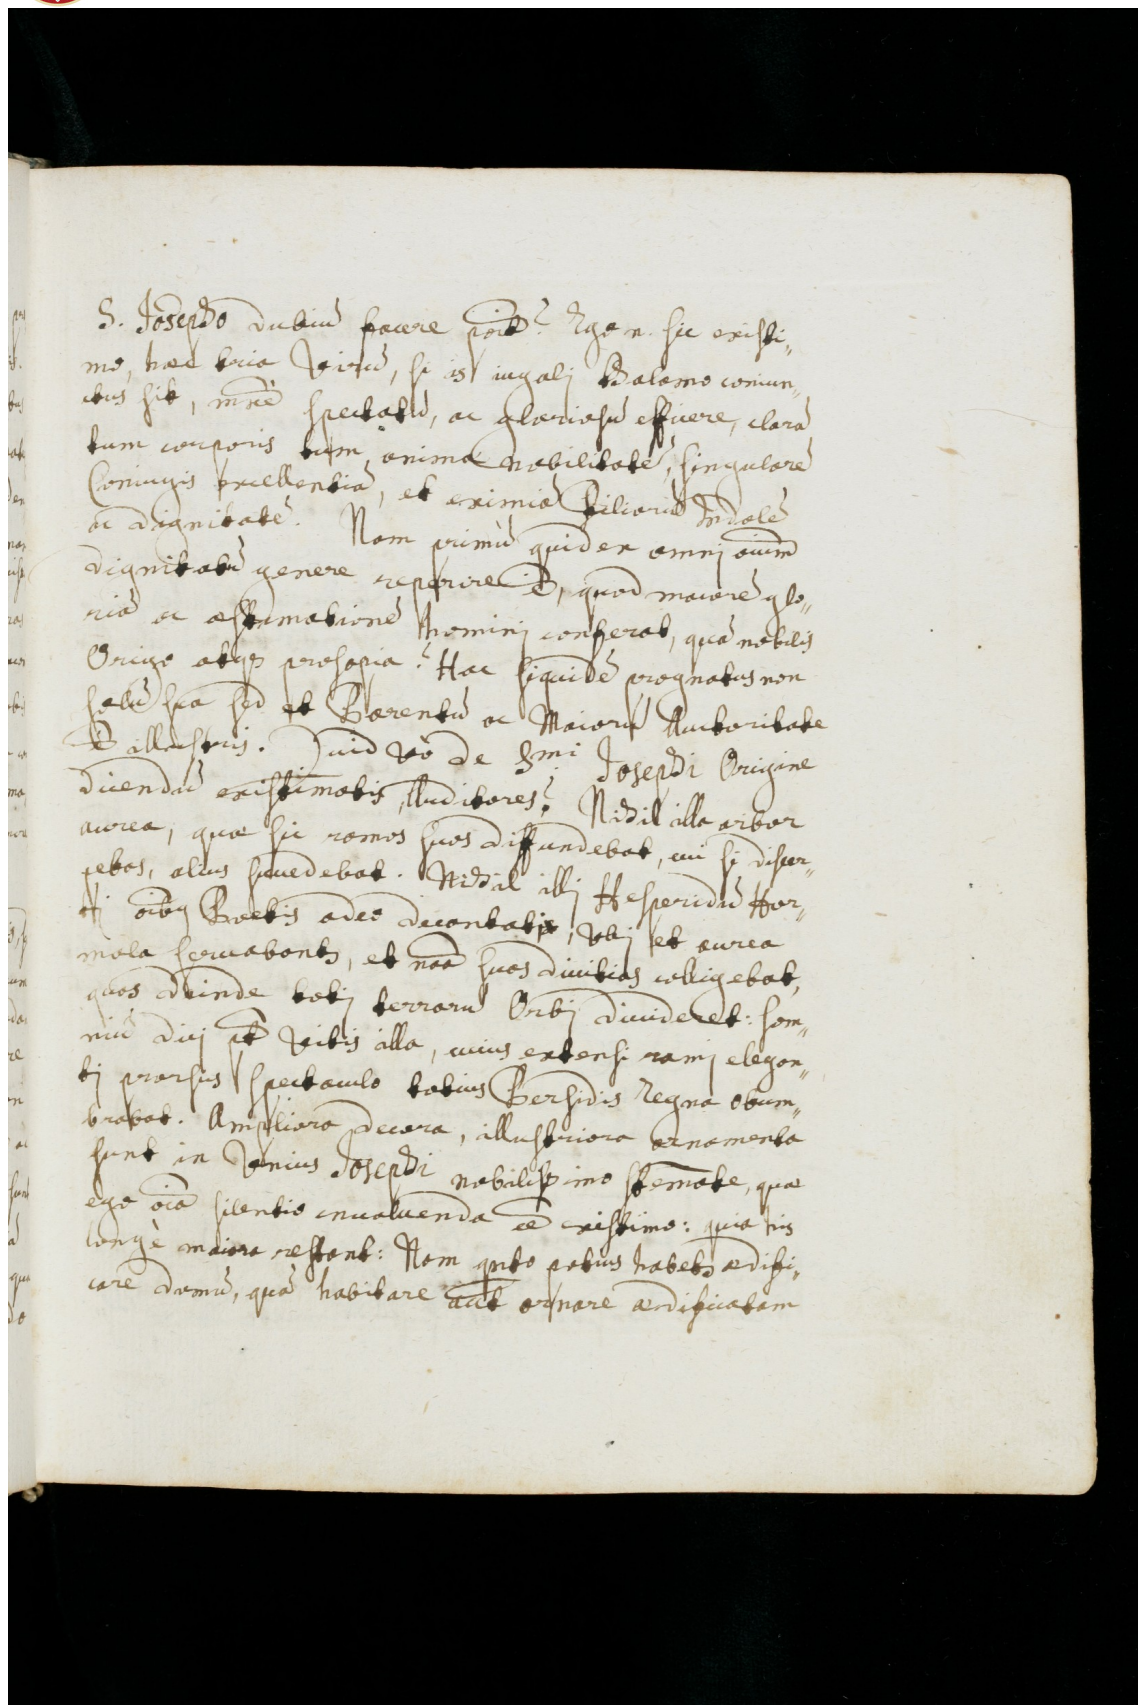 S. Josepho dubiũ facere pōit? Ego n. sic existi„
mo, haec tria Virũ, si is iugalj thalamo coniun„
ctus sit, m̄nē spectatũ, ac gloriosũ efficere, clarã
tum corporis tum animae nobilitatẽ, singularẽ
Coniugis excellentiã, et eximiã Filiorũ Indolẽ
ac dignitatẽ. Nam primũ quid ex omnj oium̄
dignitatũ genere reperire ē, quod maiorẽ glo„
riã ac aestimationẽ hominj conferat, quã nobilis
Origo atqȝ prosapia? Hac siquidẽ prognatus non
solũ sua sed et Parentũ ac Maiorũ Auctoritate
ē illustris. Quid vō de Smi Josephi Origine
dicendũ existimatis Auditores? Nihil illa arbor
aurea, quae sic ramos suos diffundebat, cui si discer„
pebas, alius succedebat. Nihil illj Hesperidũ Hor„
tj oibȝ Poetis adeo decantatj, Vbj et aurea
mala servabantȝ, et naa suas divitias colligebat,
quas deinde totj terrarũ Orbj divideret: som„
niũ dicj pt Vitis illa, cuius extensi ramj elegan„
tj prorsus spectaculo totius Persidis Regna obum„
brabat. Ampliora decora, illustriora ornamenta
sunt in Vnius Josephi nobilissimo stem̄ate, quae
ego oīa silentio involvenda ēe existimo: quia his
longè maiora restant: Nam qnto potius habetȝ aedifi„
care domũ, quã habitare aut ornare aedificatam